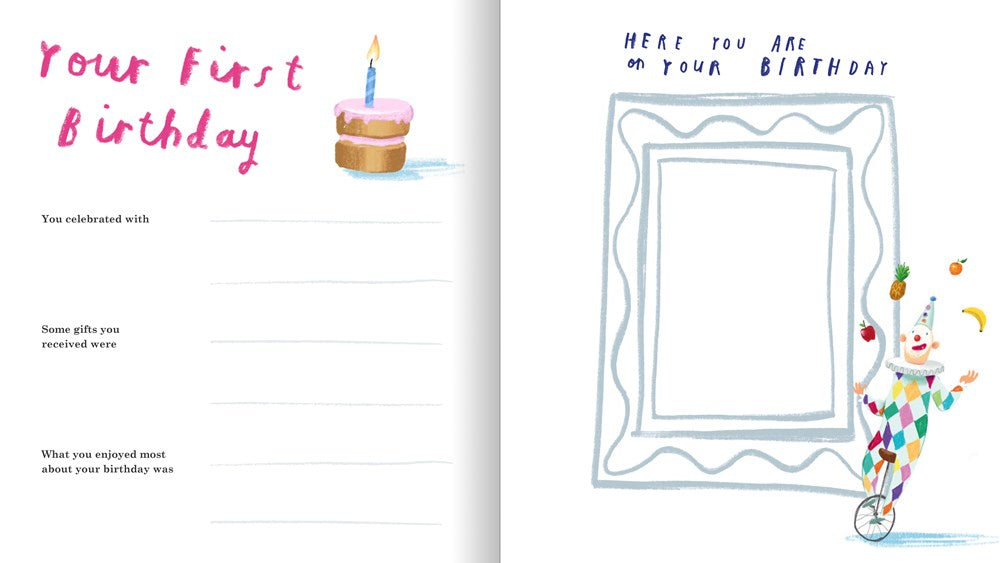 Your First
Birthday
You celebrated with
Some gifts you
received were
What you enjoyed most
about your birthday was
HERE YOU ARE
on YOUR BIRTHDAY